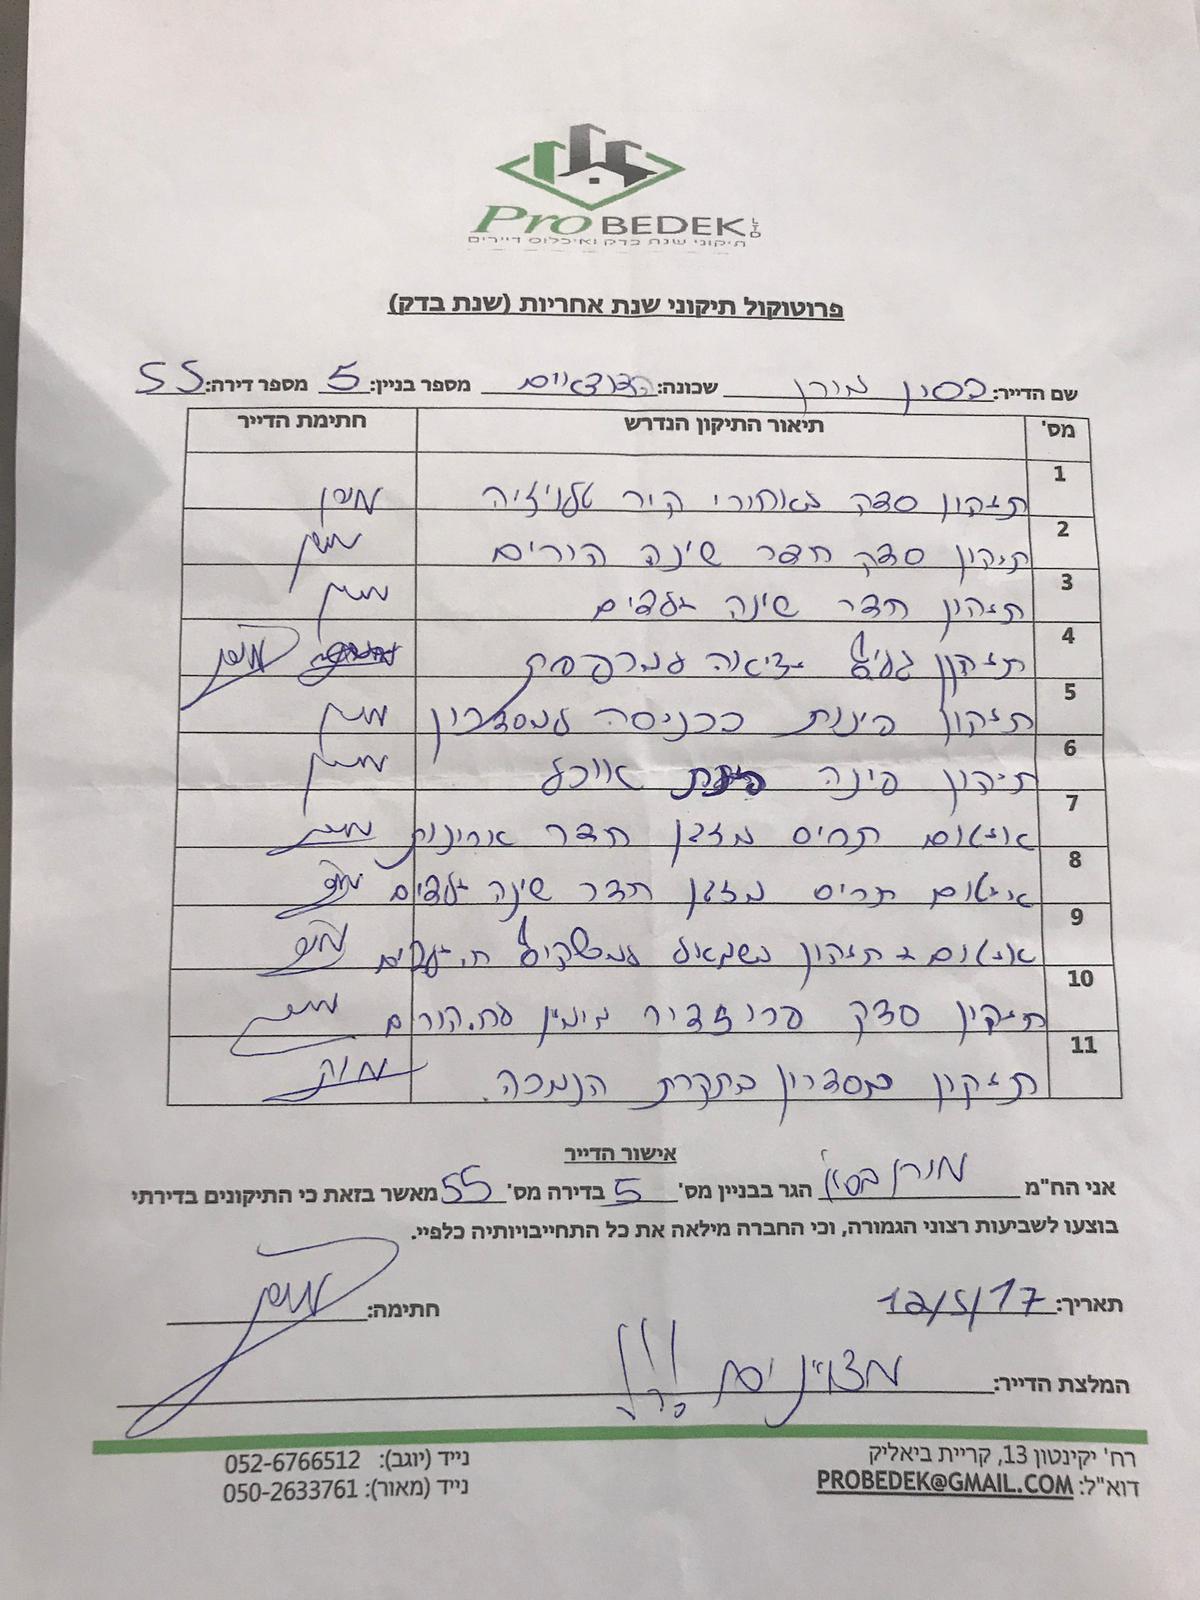 Pro BEDEK LTD
תיקוני שנת בדק ואיכלוס דיירים
פרוטוקול תיקוני שנת אחריות (שנת בדק)
שם הדייר: בסין מורן שכונה: הדודאים מספר בניין: 5 מספר דירה: 55
מס' תיאור התיקון הנדרש חתימת הדייר
1 תיקון סדק מאחורי קיר טלויזיה מורן
2 תיקון סדק חדר שינה הורים מורן
3 תיקון חדר שינה ילדים מורן
4 תיקון גליף יציאה למרפסת מורן
5 תיקון פינות בכניסה למסדרון מורן
6 תיקון פינה פינת אוכל מורן
7 איטום תריס מזגן חדר ארונות מורן
8 איטום תריס מזגן חדר שינה ילדים מורן
9 איטום + תיקון משמאל למשקוף ח. ילדים מורן
10 תיקון סדק פרוזדור מימין לח. הורים מורן
11 תיקון מסדרון בתקרת הנמכה. מורן
אישור הדייר
אני הח"מ מורן בסין הגר בבניין מס' 5 בדירה מס' 55 מאשר בזאת כי התיקונים בדירתי
בוצעו לשביעות רצוני הגמורה, וכי החברה מילאה את כל התחייבויותיה כלפיי.
תאריך: 18/5/17 חתימה: מורן
המלצת הדייר: מצויינים
רח' יקינטון 13, קריית ביאליק נייד (יוגב): 052-6766512
דוא"ל: PROBEDEK@GMAIL.COM נייד (מאור): 050-2633761